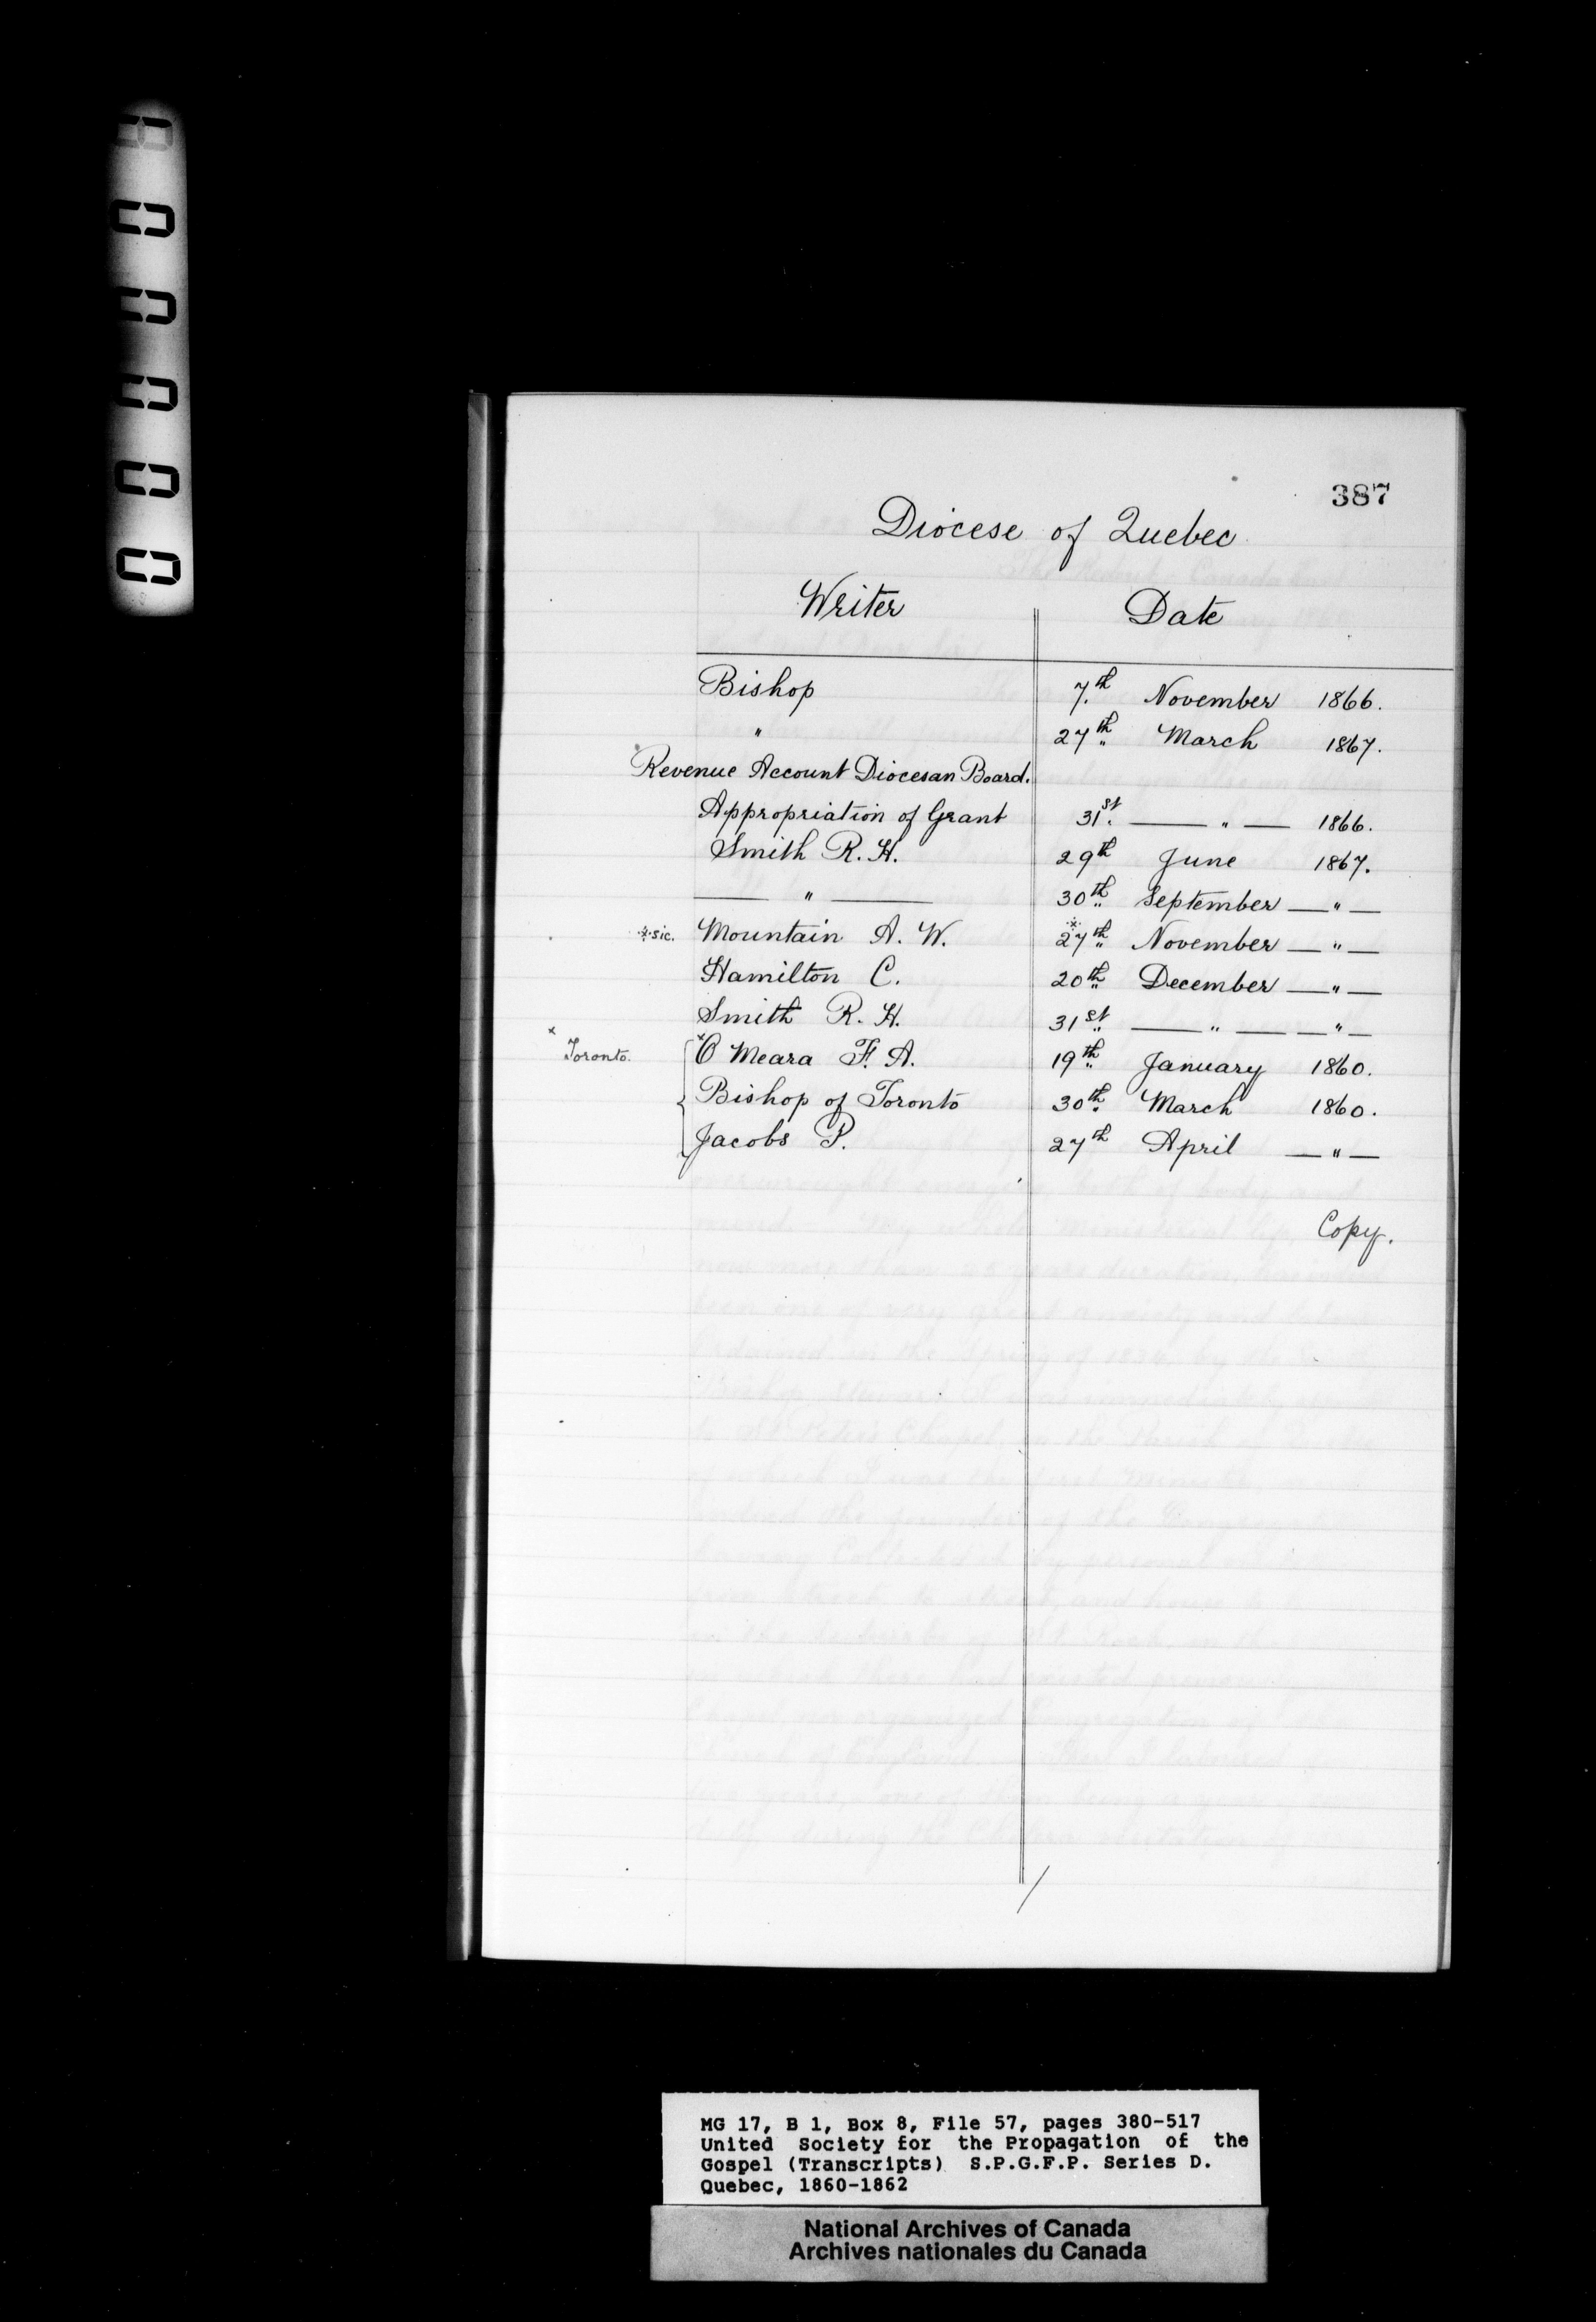 387
Diocese of Quebec
Writer Date
Bishop 7th November 1866.
" 27th March 1867.
Revenue Account Diocesan Board.
Appropriation of Grant 31st — " — 1866.
Smith R. H. 29th June 1867.
— " — 30th September — " —
*sic. Mountain A. W. *27th November — " —
Hamilton C. 20th December — " —
Smith R. H. 31st — " — — " —
x Toronto. xO Meara F. A. 19th January 1860.
Bishop of Toronto 30th March 1860.
Jacobs P. 27th April — " —
Copy.
MG 17, B 1, Box 8, File 57, pages 380-517
United Society for the Propagation of the
Gospel (Transcripts) S.P.G.F.P. Series D.
Quebec, 1860-1862
National Archives of Canada
Archives nationales du Canada